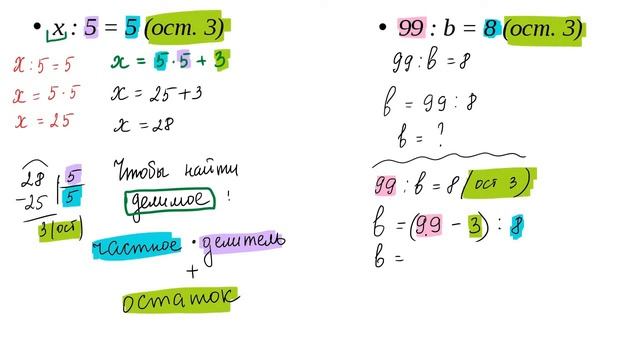 • x : 5 = 5 (ост. 3)
x : 5 = 5
x = 5 · 5
x = 25
x = 5 · 5 + 3
x = 25 + 3
x = 28
28 | 5
- 25 | 5
3 (ост)
Чтобы найти
делимое !
частное · делитель
+
остаток
• 99 : b = 8 (ост. 3)
99 : b = 8
b = 99 : 8
b = ?
99 : b = 8 (ост 3)
b = (99 - 3) : 8
b =